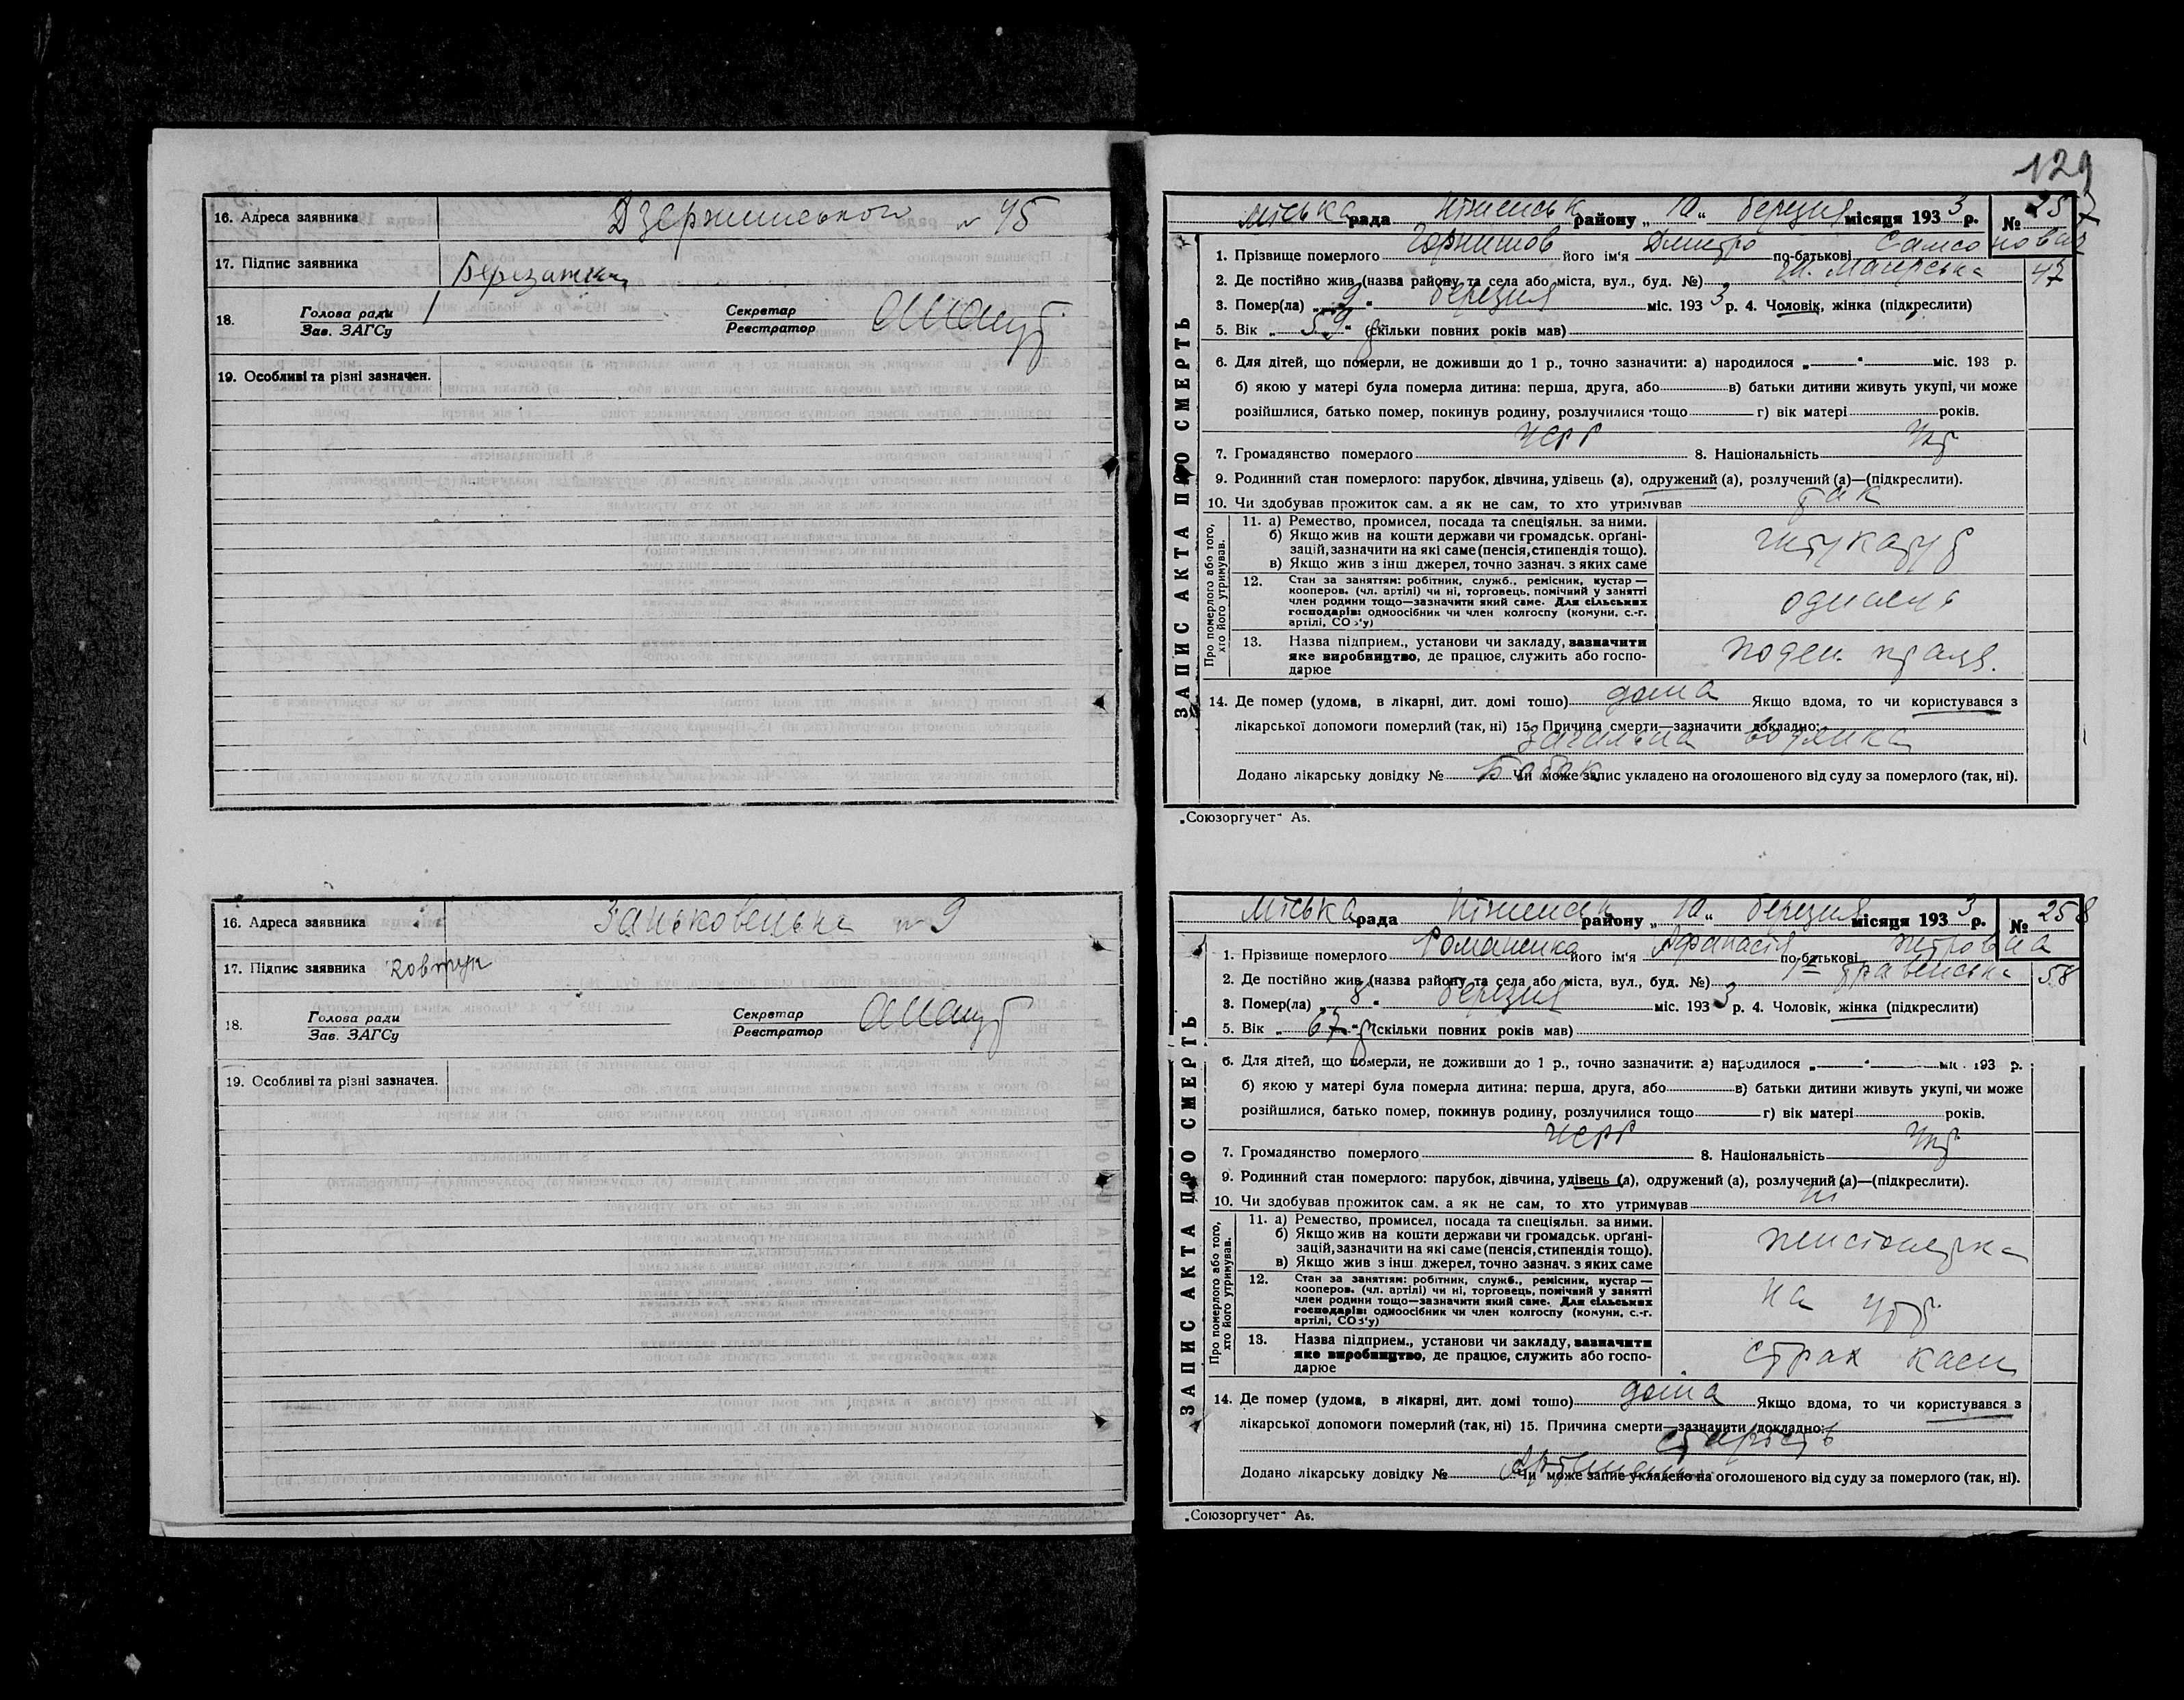 16. Адреса заявника Дзержинського № 45
17. Підпис заявника
18. Голова ради
Зав. ЗАГСу
Секретар
Реєстратор
19. Особливі та різні зазначен.
16. Адреса заявника Заньковецька № 9
17. Підпис заявника Ковтун
18. Голова ради
Зав. ЗАГСу
Секретар
Реєстратор
19. Особливі та різні зазначен.
129
ЗАПИС АКТА ПРО СМЕРТЬ
Міська рада Ніженськ району „10“ березня місяця 1933 р. № 257
1. Прізвище померлого його ім'я Дмитро по-батькові Самсонович
2. Де постійно жив (назва району та села або міста, вул., буд. №) 47
3. Помер(ла) „9“ березня міс. 1933 р. 4. Чоловік, жінка (підкреслити)
5. Вік „59“ (скільки повних років мав)
6. Для дітей, що померли, не доживши до 1 р., точно зазначити: а) народилося „ “ міс. 193 р.
б) якою у матері була померла дитина: перша, друга, або в) батьки дитини живуть укупі, чи може
розійшлися, батько помер, покинув родину, розлучилися тощо г) вік матері років.
7. Громадянство померлого УСРР 8. Національність Укр
9. Родинний стан померлого: парубок, дівчина, удівець (а), одружений (а), розлучений (а)—(підкреслити).
10. Чи здобував прожиток сам, а як не сам, то хто утримував так
Про померлого або того, хто його утримував.
11. а) Ремество, промисел, посада та спеціяльн. за ними.
б) Якщо жив на кошти держави чи громадськ. орґані-
зацій, зазначити на які саме (пенсія, стипендія тощо).
в) Якщо жив з інш джерел, точно зазнач. з яких саме
штукатур
12. Стан за заняттям: робітник, служб., ремісник, кустар —
кооперов. (чл. артілі) чи ні, торговець, помічний у занятті
член родини тощо—зазначити який саме. Для сільських
господарів: одноосібник чи член колгоспу (комуни, с.-г.
артілі, СОЗ'у)
13. Назва підприєм., установи чи закладу, зазначити
яке виробництво, де працює, служить або госпо-
дарює
поден. праця.
14. Де помер (удома, в лікарні, дит. домі тошо) дома Якщо вдома, то чи користувався з
лікарської допомоги померлий (так, ні) 15. Причина смерти—зазначити докладно:
загальна водянка
Додано лікарську довідку № Чи може запис укладено на оголошеного від суду за померлого (так, ні).
„Союзоргучет“ А5.
ЗАПИС АКТА ПРО СМЕРТЬ
Міська рада Ніженськ району „10“ березня місяця 1933 р. № 258
1. Прізвище померлого Романенко його ім'я Афанасія по-батькові Петровна
2. Де постійно жив (назва району та села або міста, вул., буд. №) 58
3. Помер(ла) „8“ березня міс. 1933 р. 4. Чоловік, жінка (підкреслити)
5. Вік „67“ (скільки повних років мав)
6. Для дітей, що померли, не доживши до 1 р., точно зазначити: а) народилося „ “ міс. 193 р.
б) якою у матері була померла дитина: перша, друга, або в) батьки дитини живуть укупі, чи може
розійшлися, батько помер, покинув родину, розлучилися тощо г) вік матері років.
7. Громадянство померлого УСРР 8. Національність Укр
9. Родинний стан померлого: парубок, дівчина, удівець (а), одружений (а), розлучений (а)—(підкреслити).
10. Чи здобував прожиток сам, а як не сам, то хто утримував ні
Про померлого або того, хто його утримував.
11. а) Ремество, промисел, посада та спеціяльн. за ними.
б) Якщо жив на кошти держави чи громадськ. орґані-
зацій, зазначити на які саме (пенсія, стипендія тощо).
в) Якщо жив з інш джерел, точно зазнач. з яких саме
пенсіонерка
12. Стан за заняттям: робітник, служб., ремісник, кустар —
кооперов. (чл. артілі) чи ні, торговець, помічний у занятті
член родини тощо—зазначити який саме. Для сільських
господарів: одноосібник чи член колгоспу (комуни, с.-г.
артілі, СОЗ'у)
на утр
13. Назва підприєм., установи чи закладу, зазначити
яке виробництво, де працює, служить або госпо-
дарює
страх каси
14. Де помер (удома, в лікарні, дит. домі тошо) дома Якщо вдома, то чи користувався з
лікарської допомоги померлий (так, ні) 15. Причина смерти—зазначити докладно:
старість
Додано лікарську довідку № Чи може запис укладено на оголошеного від суду за померлого (так, ні).
„Союзоргучет“ А5.